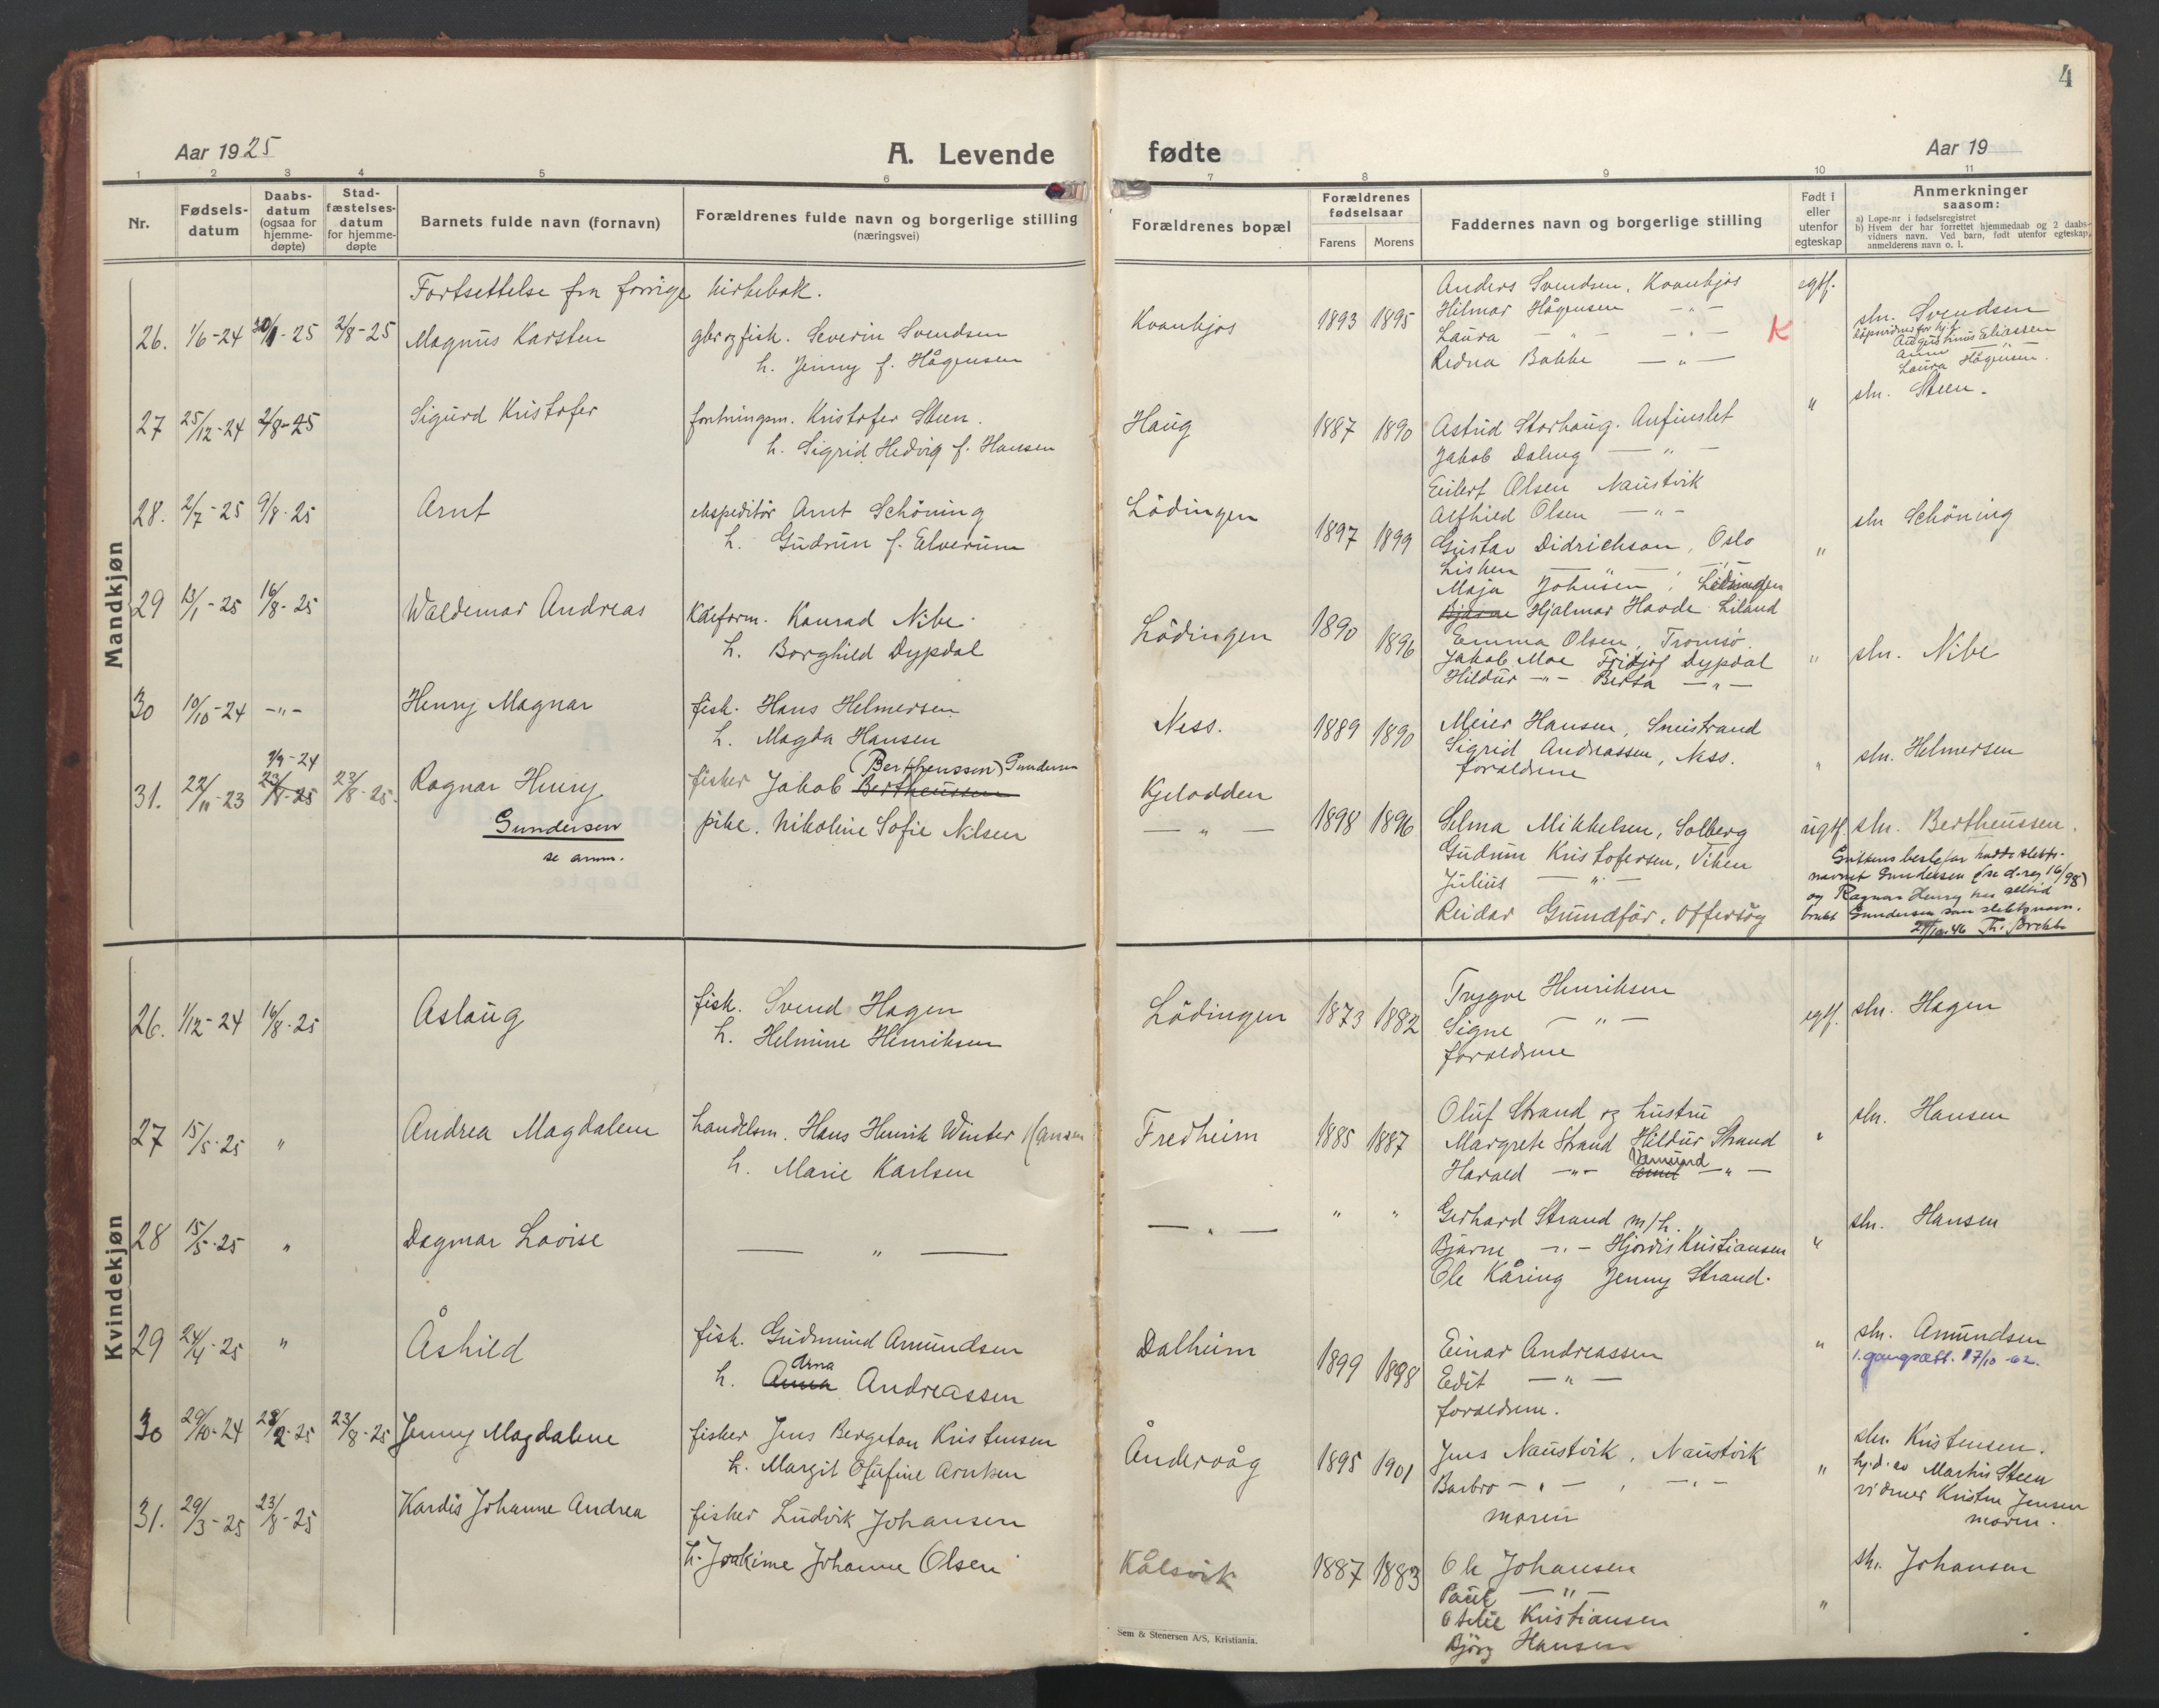 4
Aar 1925
A. Levende
fødte
Aar 19
1 2 3 4 5 6 7 8 9 10 11
Nr.
Fødsels-
datum
Daabs-
datum
(ogsaa for
hjemme-
døpte)
Stad-
fæstelses-
datum
for hjemme-
døpte
Barnets fulde navn (fornavn)
Forældrenes fulde navn og borgerlige stilling
(næringsvei)
Forældrenes bopæl
Forældrenes
fødselsaar
Farens Morens
Faddernes navn og borgerlige stilling
Født i
eller
utenfor
egteskap
Anmerkninger
saasom:
a) Løpe-nr i fødselsregistret
b) Hvem der har forrettet hjemmedaab og 2 daabs-
vidners navn. Ved barn, født utenfor egteskap,
anmelderens navn o. l.
Mandkjøn
Fortsettelse fra forrige kirkebok.
26. 1/6-24 30/1-25 2/8-25 Magnus Karsten
gbr og fisk. Severin Svendsen
h. Jenny f. Hågensen
Kvankjos 1893 1895
Anders Svendsen, Kvankjos
Hilmar Hågensen -"-
Laura -"- -"-
Redna Bakke -"-
egtf.
K
sln. Svendsen
Augustinus Eliassen
Anna -"-
Laura Hågensen.
27 25/12-24 2/8-25 Sigurd Kristofer
forhringsm. Kristofer Steen.
h. Sigrid Hedvig f. Hansen
Haug 1887 1890
Astrid Storhaug. Anfinslet
Jakob Dalmg -"-
Eilert Olsen Naustvik
Alfhild Olsen -"-
"
sln. Steen.
28. 2/7-25 9/8-25 Arnt
ekspeditör Arnt Schöning
h. Gudrun f. Elverum
Lödingen 1897 1899
Gustav Didrichson, Oslo
Lisken -"- -"-
Maja Johnsen, Lödingen
"
sln Schöning
29 13/1-25 16/8-25 Waldemar Andreas
Kaieform. Konrad Nibe.
h. Borghild Dypdal
Lödingen 1890 1896
Bjarne Hjalmar Havde Liland
Emma Olsen, Tromsö
Jakob Moe Fridjof Dypdal
Hildur -"- Berta -"-
"
sln. Nibe
30 10/10-24 -"- Henry Magnar
fisk. Hans Helmersen
h. Magda Hansen
Ness. 1889 1890
Meier Hansen, Sneistrand
Sigrid Andreassen, Ness.
foreldrene
"
sln. Helmersen
9/9-24
31. 22/11-23 23/8-25 23/8-25. Ragnar Henry
Gundersen
se anm.
(Bertheussen) Gundersen
fisker Jakob Bertheussen
pike. Nikoline Sofie Nilsen
Kjelodden
-"- 1898 1896
Selma Mikkelsen, Solberg
Gudrun Kristofersen, Viken
Julius -"-
Reidar Gundfär, Offersög
ugtf.
sln. Bertheussen.
Guttens bestefar hadde slekts-
navnet Gundersen (se d.reg. 16/98)
og Ragnar Henry har alltid
brukt Gundersen som slektsnavn.
Kvindekjøn
26. 1/12-24 16/8-25 Aslaug
fisk. Svend Hagen
h. Helmine Henriksen
Lödingen 1873 1882
Trygve Henriksen
Signe -"-
foreldrene
egtf.
sln. Hagen
27 15/5-25 " Andrea Magdalene
handelsm. Hans Henrik Winter Hansen
h. Marie Karlsen
Fredheim 1885 1887
Oluf Strand og hustru
Margrete Strand Hildur Strand
Harald -"- Vemund -"-
"
sln. Hansen
28 15/5-25 " Dagmar Lovise
-"-
-"- " "
Gerhard Strand m/h.
Bjarne -"- Hjördis Kristiansen
Ole Kåring Jenny Strand.
"
sln. Hansen
29 24/4-25 " Åshild
fisk. Gudmund Amundsen
Arna
h. Anna Andreassen
Dalheim 1899 1898
Einar Andreassen
Edit -"-
foreldrene.
"
sln. Amundsen
1. gangsatt. 17/10-62.
30 29/10-24 28/2-25 23/8-25 Jenny Magdalene
fisker Jens Bergeton Kristensen
h. Margit Olufine Arntsen
Åndervåg 1895 1901
Jens Naustvik, Naustvik
Barbro -"- , -"-
moren
"
sln. Kristensen.
hj.d. av Martin Steen
vidner Kristine Jensen
moren.
31. 29/3-25 23/8-25 Hardis Johanne Andrea
fisker Ludvik Johansen
h. Joakime Johanne Olsen
Kålsvik 1887 1883
Ole Johansen
Paul -"-
Otelie Kristiansen
Björg Hansen
"
sln. Johansen
Sem & Stenersen A/S, Kristiania.